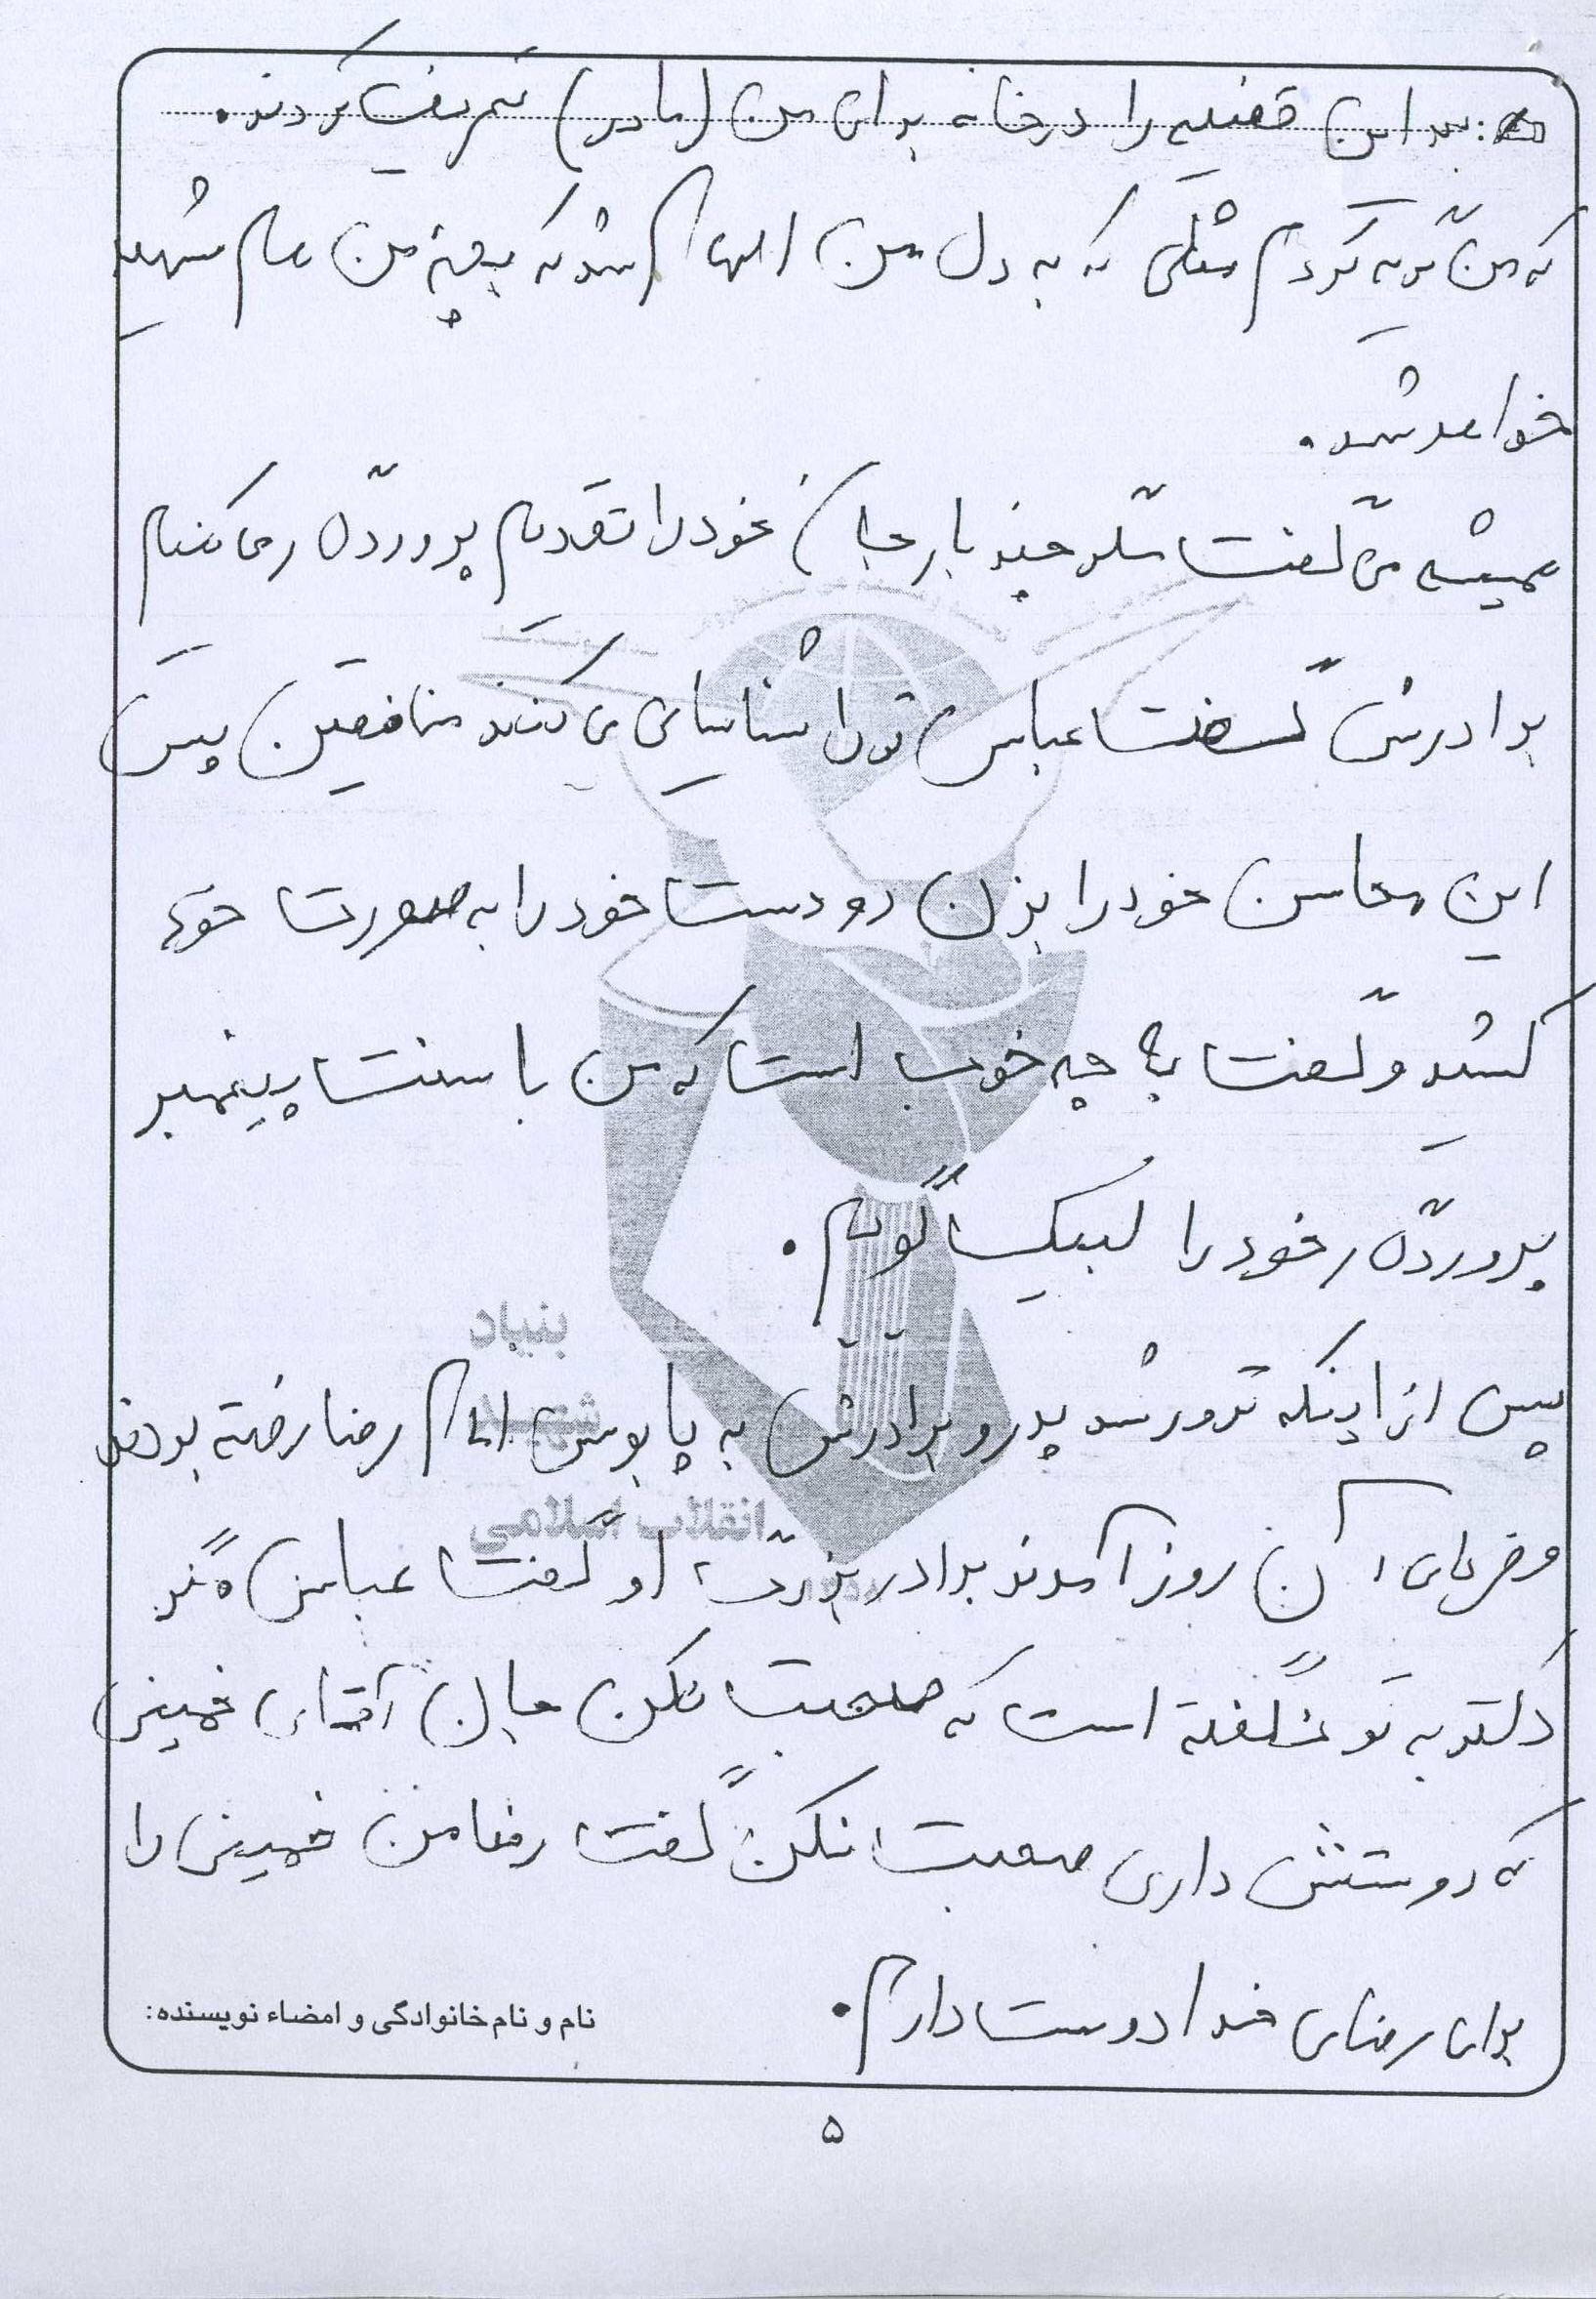 بعد این قضیه را در خانه برای من (مادر) تعریف کردند.
که من گریه کردم مثلی که به دل من الهام شد که بچه من هم شهید
خواهد شد.
همیشه می گفت مگر چند بار جان خود را تقدیم پروردگار می کنیم
برادرش گفت عباس تو را شناسایی می کنند منافقین پس
این محاسن خود را بزن دو دست خود را به صورت خود
کشید و گفت چه خوب است که من با سنت پیغمبر
پروردگار خود را لبیک گویم.
پس از اینکه ترور شد پدر و برادرش به پابوس امام رضا رفته بودند
فردای آن روز آمدند برادر بزرگ او گفت عباس مگر
دکتر به تو نگفته است که صحبت نکن حال آقای خمینی
که دوستش داری صحبت نکن گفت رضا من خمینی را
برای رضای خدا دوست دارم.
نام و نام خانوادگی و امضاء نویسنده:
۵
بنیاد
شهید
انقلاب اسلامی